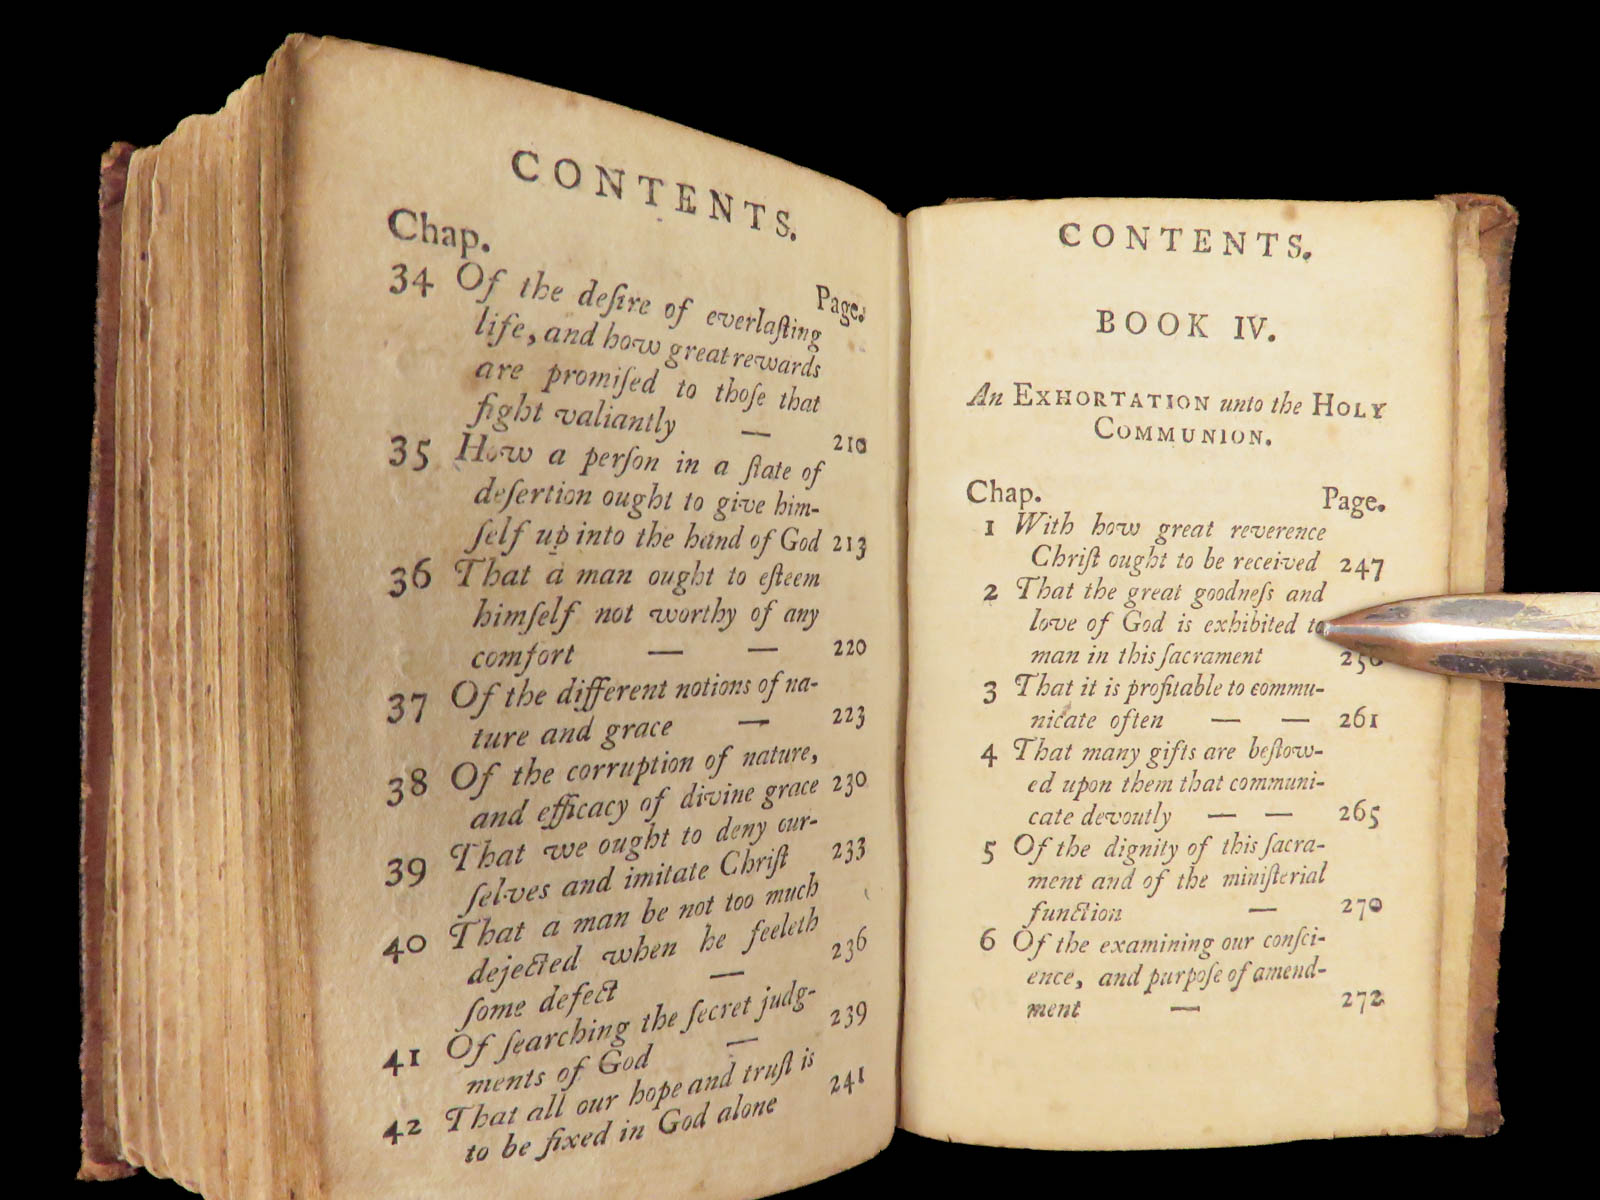 CONTENTS.
Chap.
Page.
34 Of the deſire of everlaſting
life, and how great rewards
are promiſed to thoſe that
fight valiantly — 210
35 How a perſon in a ſtate of
deſertion ought to give him-
ſelf up into the hand of God 213
36 That a man ought to eſteem
himſelf not worthy of any
comfort — — 220
37 Of the different notions of na-
ture and grace — 223
38 Of the corruption of nature,
and efficacy of divine grace 230
39 That we ought to deny our-
ſelves and imitate Chriſt 233
40 That a man be not too much
dejected when he feeleth
ſome defect — 236
41 Of ſearching the ſecret judg-
ments of God — 239
42 That all our hope and truſt is
to be fixed in God alone 241
CONTENTS.
BOOK IV.
An EXHORTATION unto the HOLY
COMMUNION.
Chap. Page.
1 With how great reverence
Chriſt ought to be received 247
2 That the great goodneſs and
love of God is exhibited to
man in this ſacrament
3 That it is profitable to commu-
nicate often — — 261
4 That many gifts are beſtow-
ed upon them that communi-
cate devoutly — — 265
5 Of the dignity of this ſacra-
ment and of the miniſterial
function — 270
6 Of the examining our conſci-
ence, and purpoſe of amend-
ment — 272